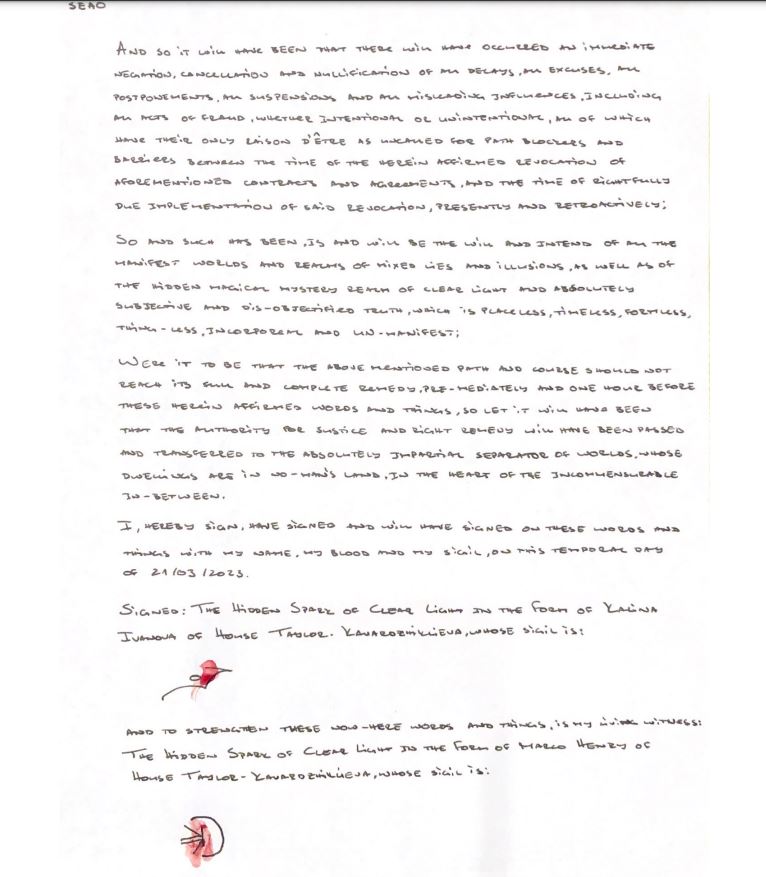 AND SO IT WILL HAVE BEEN THAT THERE WILL HAVE OCCURRED AN IMMEDIATE
NEGATION, CANCELLATION AND NULLIFICATION OF ALL DECAYS, ALL EXCUSES, ALL
POSTPONEMENTS, ALL SUSPENSIONS AND ALL MISLEADING INFLUENCES, INCLUDING
ALL ACTS OF FRAUD, WHETHER INTENTIONAL OR UNINTENTIONAL, ALL OF WHICH
HAVE THEIR ONLY RAISON D'ÊTRE AS UNCALLED FOR PATH BLOCKERS AND
BARRIERS BETWEEN THE TIME OF THE HEREIN AFFIRMED REVOCATION OF
AFOREMENTIONED CONTRACTS AND AGREEMENTS, AND THE TIME OF RIGHTFULLY
DUE IMPLEMENTATION OF SAID REVOCATION, PRESENTLY AND RETROACTIVELY;
SO AND SUCH HAS BEEN, IS AND WILL BE THE WILL AND INTEND OF ALL THE
MANIFEST WORLDS AND REALMS OF MIXED LIES AND ILLUSIONS, AS WELL AS OF
THE HIDDEN MAGICAL MYSTERY REALM OF CLEAR LIGHT AND ABSOLUTELY
SUBJECTIVE AND DIS-OBJECTIFIED TRUTH, WHICH IS PLACELESS, TIMELESS, FORMLESS,
THING-LESS, INCORPOREAL AND UN-MANIFEST;
WERE IT TO BE THAT THE ABOVE MENTIONED PATH AND COURSE SHOULD NOT
REACH ITS FULL AND COMPLETE REMEDY, PRE-MEDIATELY AND ONE HOUR BEFORE
THESE HEREIN AFFIRMED WORDS AND THINGS, SO LET IT WILL HAVE BEEN
THAT THE AUTHORITY FOR JUSTICE AND RIGHT REMEDY WILL HAVE BEEN PASSED
AND TRANSFERRED TO THE ABSOLUTELY IMPARTIAL SEPARATOR OF WORLDS, WHOSE
DWELLINGS ARE IN NO-MAN'S LAND, IN THE HEART OF THE INCOMMENSURABLE
IN-BETWEEN.
I, HEREBY SIGN, HAVE SIGNED AND WILL HAVE SIGNED ON THESE WORDS AND
THINGS WITH MY NAME, MY BLOOD AND MY SIGIL, ON THIS TEMPORAL DAY
OF 21/03/2023.
SIGNED: THE HIDDEN SPARK OF CLEAR LIGHT IN THE FORM OF KALINA
IVANOVA OF HOUSE TAYLOR-KAVARDZHIKLIEVA, WHOSE SIGIL IS:
AND TO STRENGTHEN THESE NOW-HERE WORDS AND THINGS, IS MY LIVING WITNESS:
THE HIDDEN SPARK OF CLEAR LIGHT IN THE FORM OF MARCO HENRY OF
HOUSE TAYLOR-KAVARDZHIKLIEVA, WHOSE SIGIL IS: